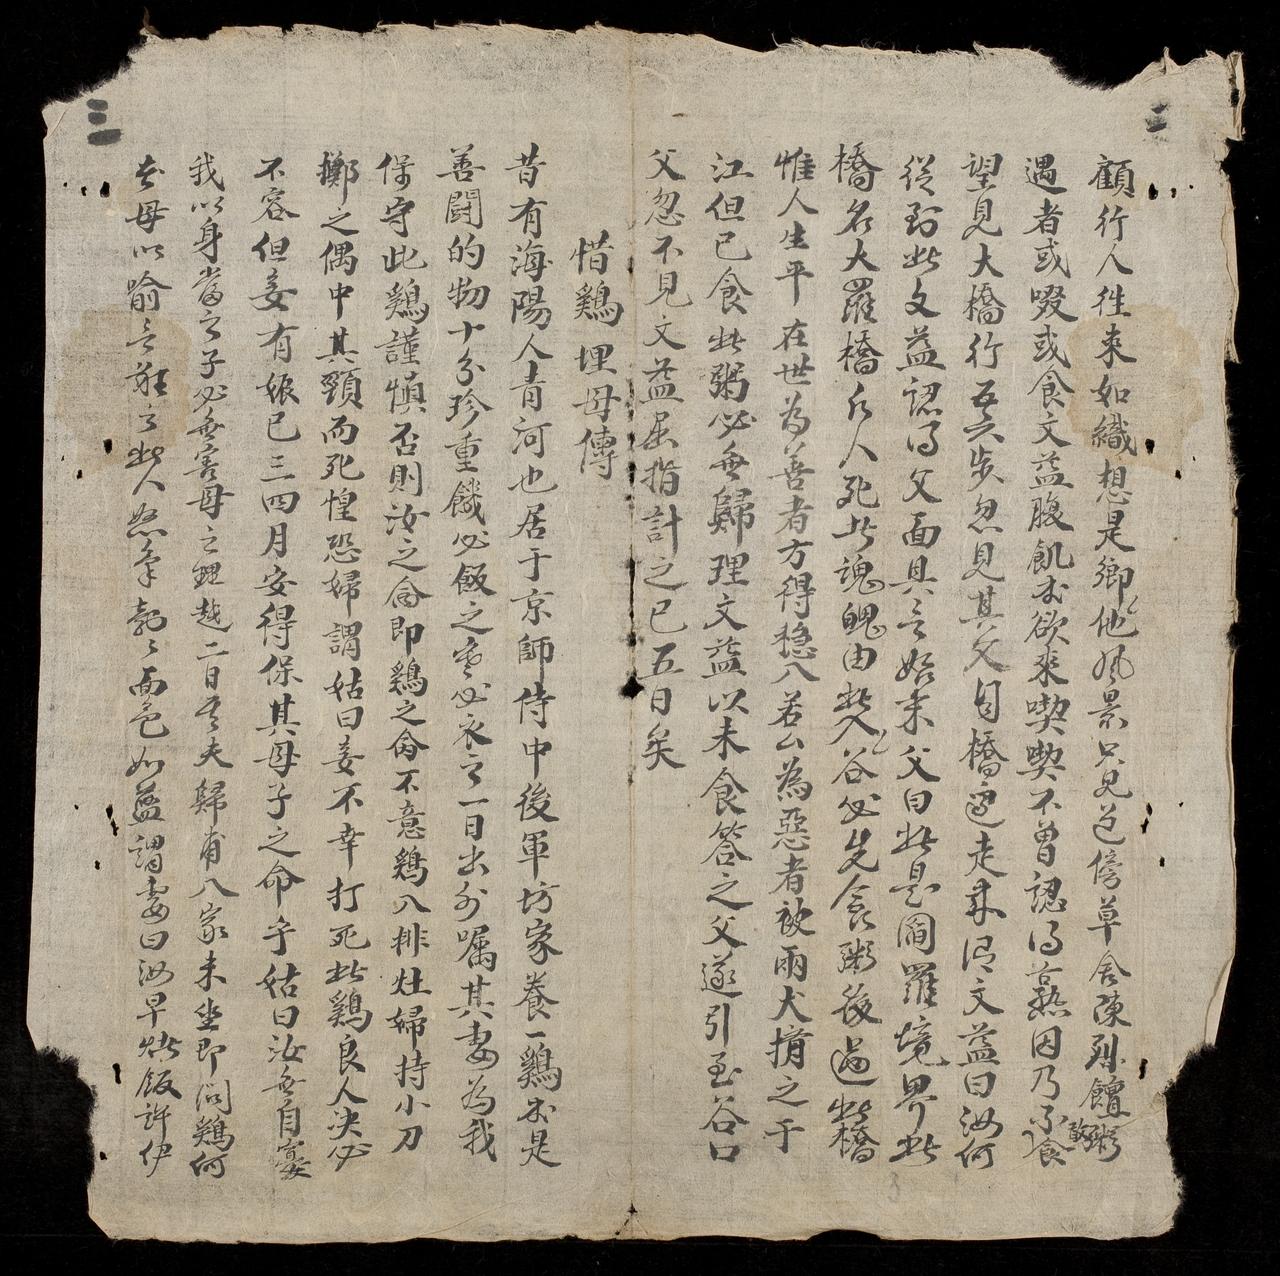 二
顧行人徃來如織想是鄉他風景只見道傍草舍陳列饘粥
遇者或啜或食文益腹飢亦欲來喫喫不曾認得熟因乃不敢食
望見大橋行五六步忽見其父自橋邊走來謂文益曰汝何
從到此文益認得父面具言始末父曰此是閻羅境界此
橋名大羅橋凢人死此魂魄由此入谷必先食粥後過此橋
惟人生平在世為善者方得穏入若公為惡者被兩犬擠之于
江但已食此粥必無歸理文益以未食答之父遂引至谷口
父忽不見文益屈指計之已五日矣
惜鷄埋母傳
昔有海陽人青河也居于京師侍中後軍坊家養一鷄亦是
善闘的物十分珍重饑必飯之寒必衣之一日出外囑其妻為我
保守此鷄謹慎否則汝之命即鷄之命不意鷄入排灶婦持小刀
擲之偶中其頸而死惶恐婦謂姑曰妾不幸打死此鷄良人决必
不容但妾有娠已三四月安得保其母子之命乎姑曰汝無自憂
我以身當之子必無害母之理越二日其夫歸甫入家未坐即問鷄何
在母以喻言難言此人怒氣勃々面色如藍謂妻曰汝早燒飯許伊
三